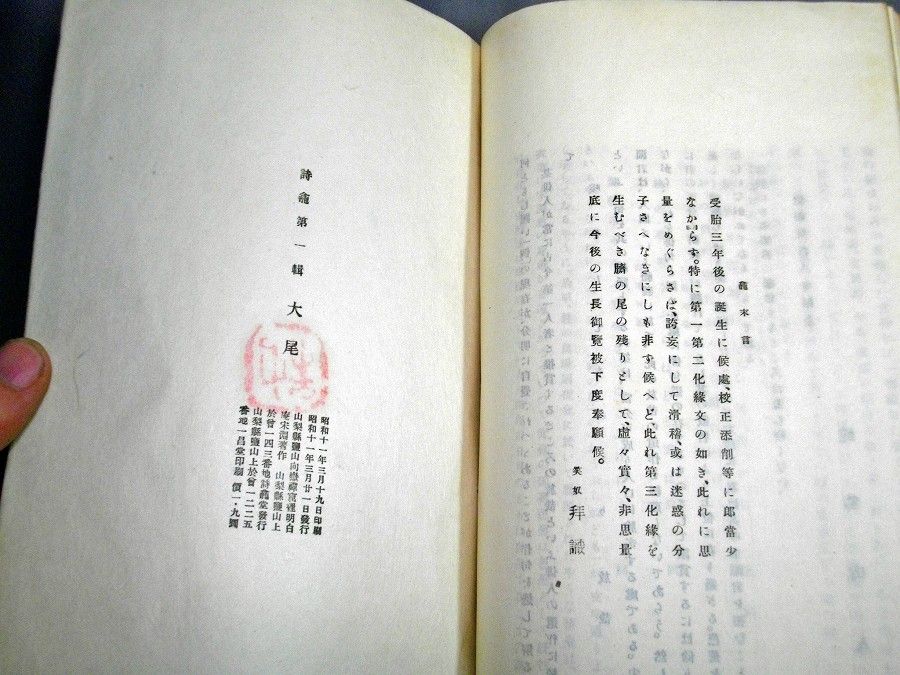 龕末言
受胎三年後の誕生に候處、校正添削等に郎當少
なからす。特に第一第二化緣文の如き、此れに思
量をめぐらさば、誇妄にして滑稽、或は迷惑の分
子さへなきにしも非す候へど、此れ第三化緣を
生むべき臍の尾の殘りとして、虛々實々、非思量
底に今後の生長御覽被下度奉願候。
笑奴 拜識
詩龕第一輯 大尾
昭和十一年三月十九日印刷
昭和十一年三月廿一日發行
山梨縣鹽山向嶽禪窟裡明白
庵宋淵著作 山梨縣鹽山上
於曾一四三番地詩龕堂發行
山梨縣鹽山上於曾一二二五
番地一昌堂印刷 價一・九圓